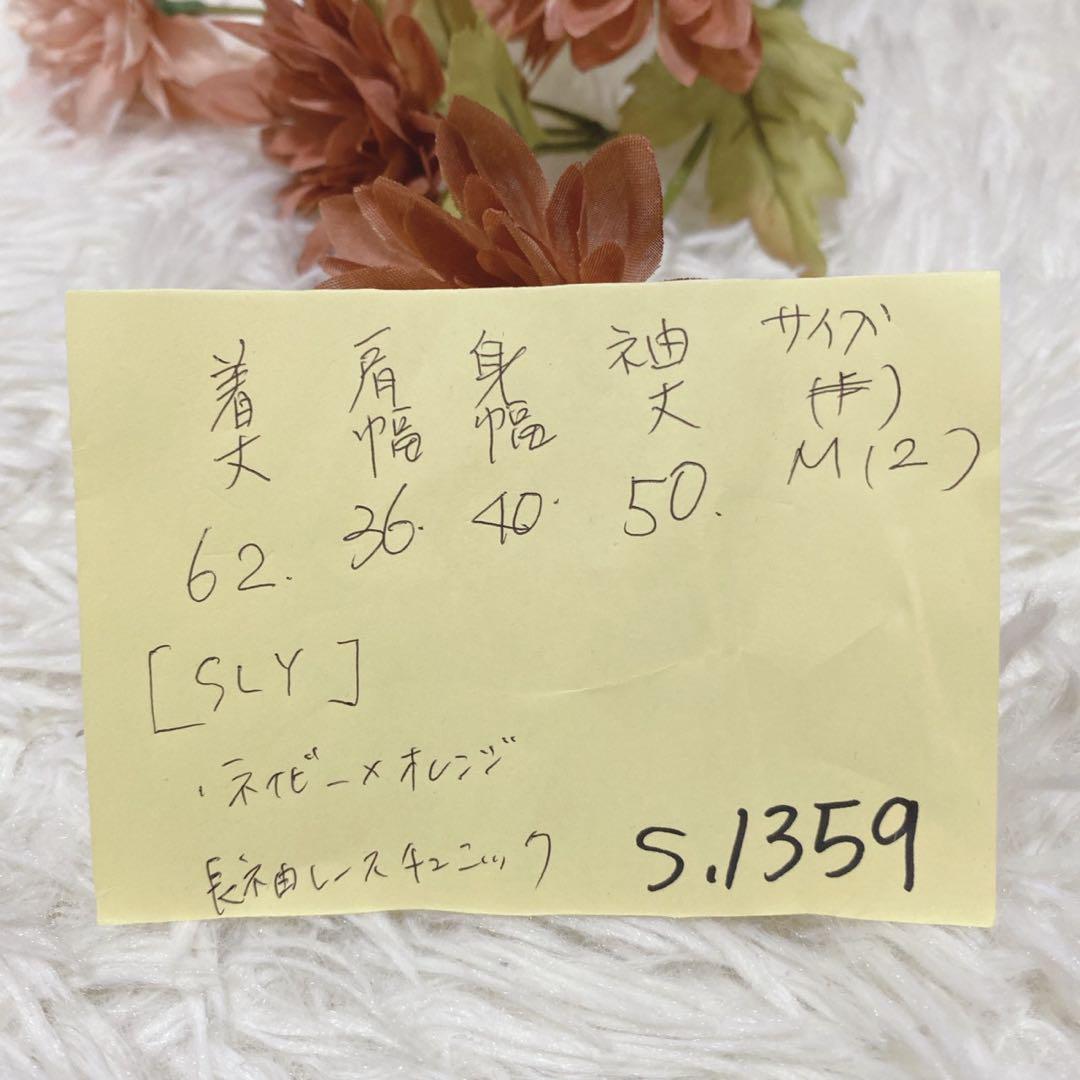 着丈 肩幅 身幅 袖丈 サイズ
M(2)
62. 36. 40. 50.
[SLY]
・ネイビー×オレンジ
長袖レースチュニック
S.1359